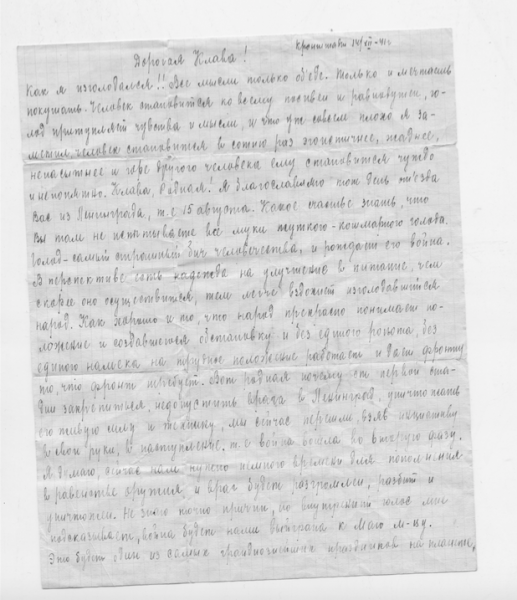 Кронштадт 14/XII-41г
Дорогая Клава!
Как я изголодался!! Все мысли только об еде. Только и мечтаешь
покушать. Человек становится ко всему пассивен и равнодушен, го-
лод притупляет чувства и мысли, и что уж совсем плохо я за-
метил, человек становится в сотню раз эгоистичнее, жаднее,
ненасытнее и горе другого человека ему становится чуждо
и непонятно. Клава, родная! Я благославляю тот день отъезда
Вас из Ленинграда, т.е 15 августа. Какое счастье знать, что
Вы там не испытываете все муки жуткого-кошмарного голода.
Голод-самый страшный бич человечества, и рождает его война.
В перспективе есть надежда на улучшение в питание, чем
скорее оно осуществится, тем легче вздохнет изголодавшийся
народ. Как хорошо и то, что народ прекрасно понимает по-
ложение и создавшееся обстановку и без единого ропота, без
единого намека на трудное положение работает и дает фронту
то, что фронт требует. Вот родная почему от первой ста-
дии закрепиться, недопустить врага в Ленинград, уничтожать
его живую силу и технику, мы сейчас перешли, взяв инициативу
в свои руки, в наступление. т.е война вошла во вторую фазу.
Я думаю, сейчас нам нужно немного времени для пополнения
в равенстве оружия, и враг будет разгромлен, разбит и
уничтожен. Не знаю точно причин, но внутренний голос мне
подсказывает, война будет нами выиграна к Маю м-цу.
Это будет один из самых грандиознейших праздников на планете,